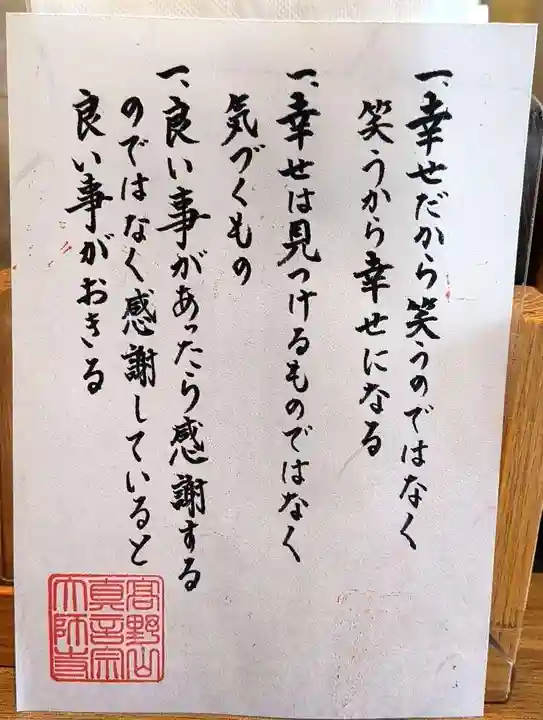 一、幸せだから笑うのではなく
笑うから幸せになる
一、幸せは見つけるものではなく
気づくもの
一、良い事があったら感謝する
のではなく感謝していると
良い事がおきる
高野山
真言宗
大師寺